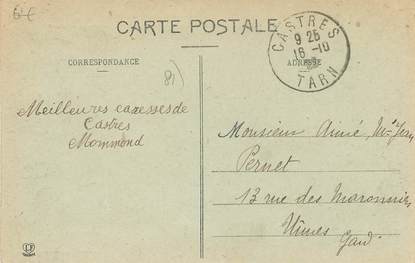 6€
CARTE POSTALE
CORRESPONDANCE
ADRESSE
CASTRES
9 25
16-10
TARN
81)
Meilleures caresses de
Castres
Mommond
Monsieur Aimé
Pernet
13 rue des Maronniers
Nimes
Gard